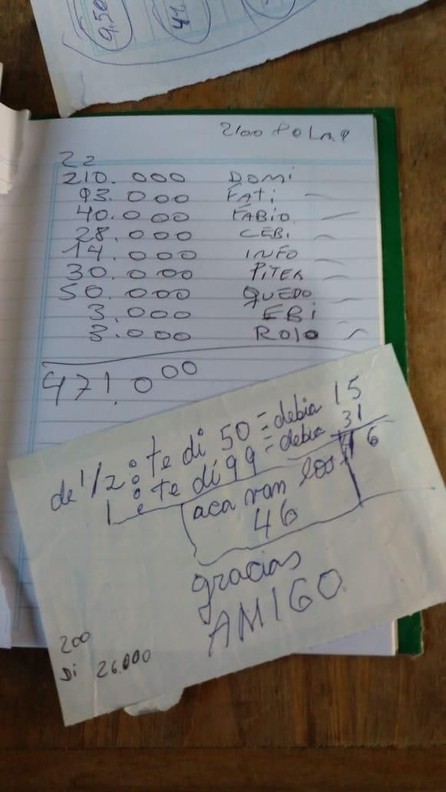 9,50
2100
22
210.000 DOMI
93.000 FATI
40.000 FABIO
28.000 CEBI
14.000 INFO
30.000 PITER
50.000 QUEDO
3.000 EBI
3.000 ROLO
471.000
de 1/2: te di 50 = debia 15
1: te di 99 = debia 31
aca van los 46
46
gracias
AMIGO
200
Di 26.000